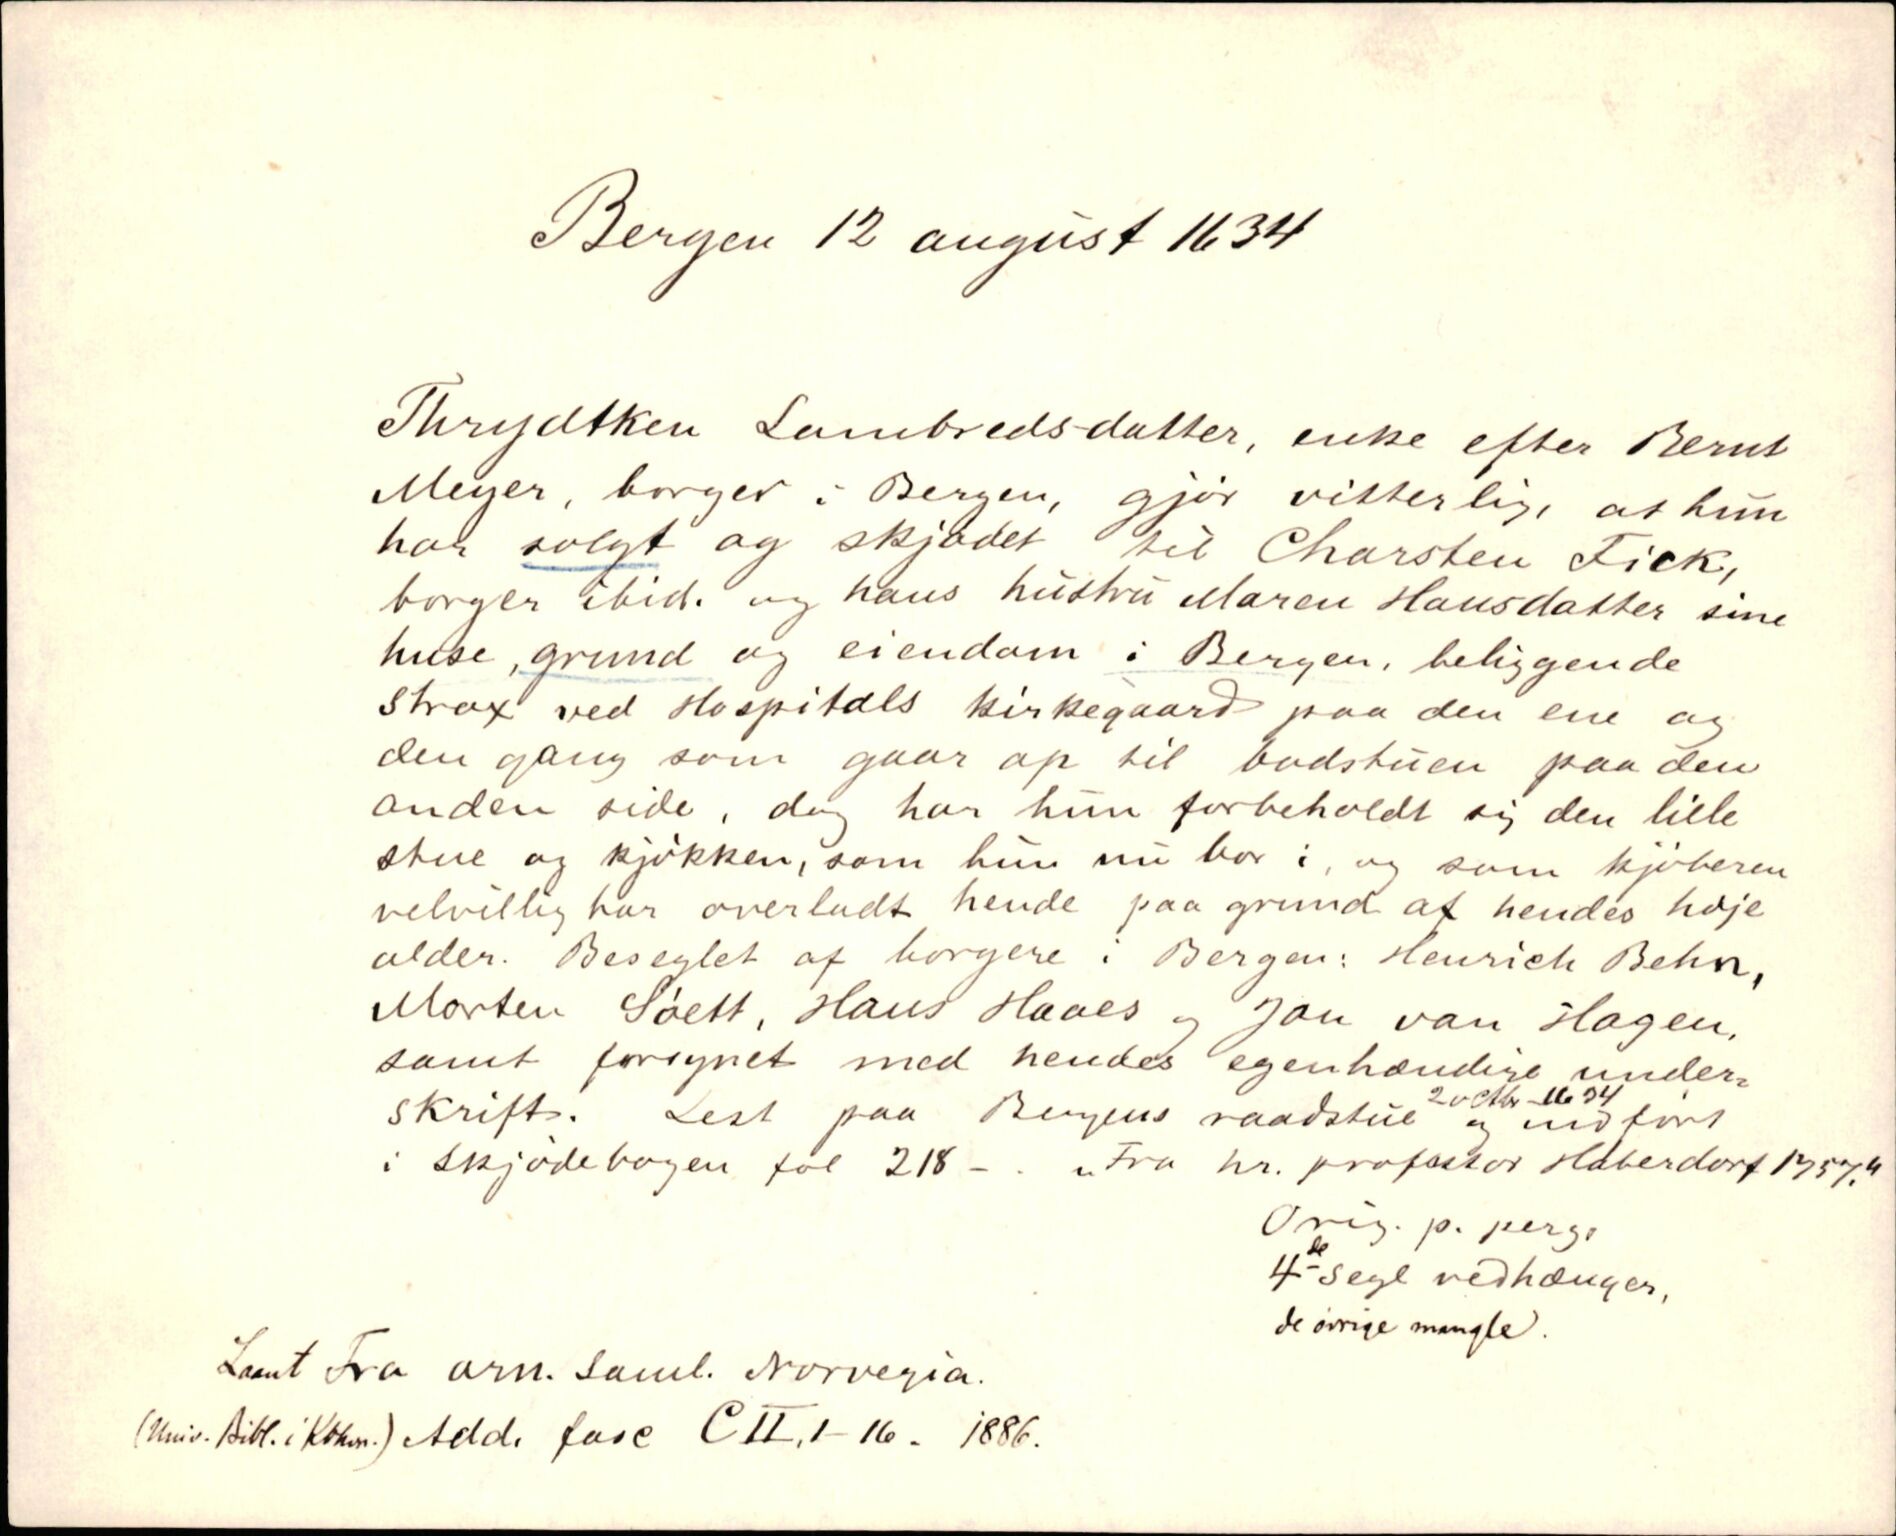 Bergen 12 august 1634
Thrydtken Lambredsdatter, enke efter Bernt
Meyer, borger i Bergen, gjør vitterlig, at hun
har solgt og skjødet til Charsten Fick,
borger ibid. og hans hustru Maren Hansdatter sine
huse, grund og eiendom i Bergen, beliggende
strax ved Hospitals kirkegaard paa den ene og
den gang som gaar op til badstuen paa den
anden side, dog har hun forbeholdt sig den lille
stue og kjøkken, som hun nu bor i, og som kjøberen
velvillig har overladt hende paa grund af hendes høje
alder. Beseglet af borgere i Bergen: Henrich Behn,
Morten Søett, Hans Haaes og Jan van Hagen,
samt forsynet med hendes egenhændige under-
skrift. Lest paa Bergens raadstue 2 octbr 1634 og indført
i skjødebogen fol 218 - . "Fra hr. professor Haberdorf 1757."
Orig. p. perg.
4de segl vedhænger,
de øvrige mangle.
Laant Fra arn. Saml. Norvegia.
(Univ. Bibl. i Kbhvn.) Add. fasc CII, 1-16. 1886.